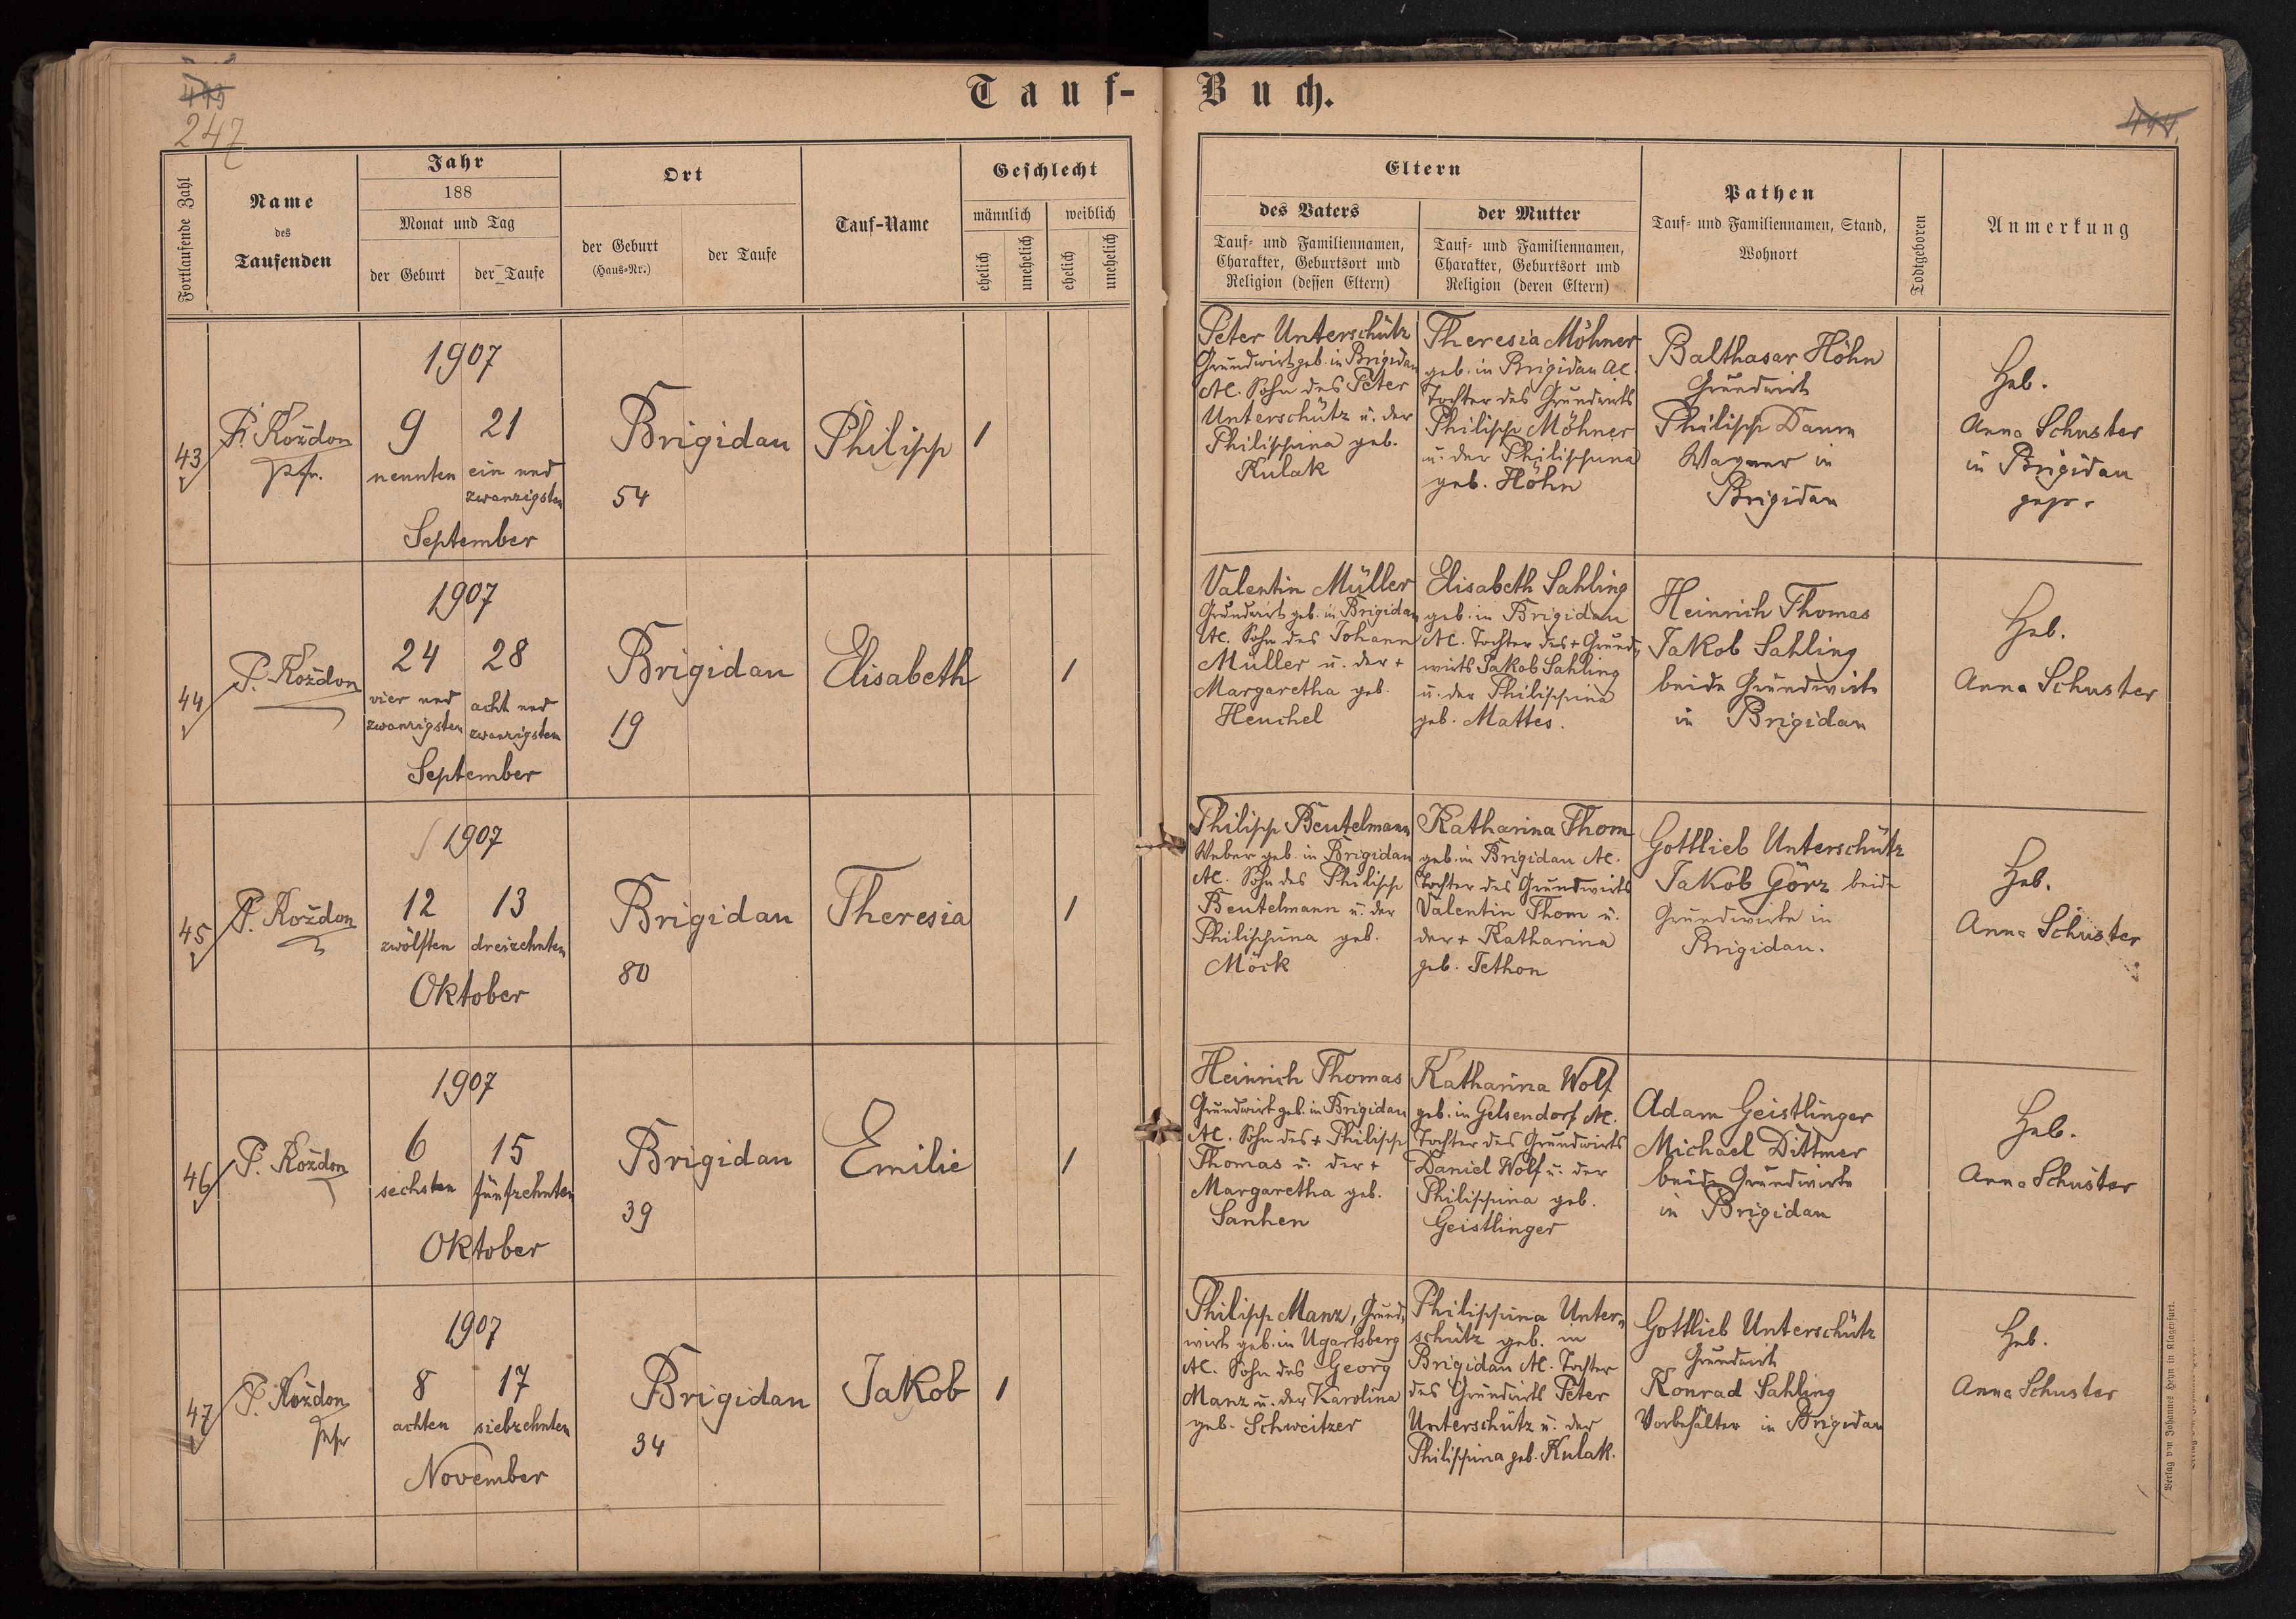 Tauf-Buch.
247
444
Fortlaufende Zahl
Name
des
Taufenden
Jahr
188
Monat und Tag
der Geburt
der Taufe
Ort
der Geburt
(Haus-Nr.)
der Taufe
Tauf-Name
Geschlecht
männlich
weiblich
ehelich
unehelich
ehelich
unehelich
Eltern
des Vaters
Tauf- und Familiennamen,
Charakter, Geburtsort und
Religion (dessen Eltern)
der Mutter
Tauf- und Familiennamen,
Charakter, Geburtsort und
Religion (deren Eltern)
Pathen
Tauf- und Familiennamen, Stand,
Wohnort
Todtgeboren
Anmerkung
43
P. Koždon
pfr.
1907
9
21
neunten
ein und
zwanzigsten
September
Brigidau
54
Philipp
1
Peter Unterschütz
Grundwirt geb. in Brigidau
AC. Sohn des Peter
Unterschütz u. der
Philippina geb.
Kulak
Theresia Möhner
geb. in Brigidau AC.
Tochter des Grundwirts
Philipp Möhner
u. der Philippina
geb. Höhn
Balthasar Höhn
Grundwirt
Philipp Daum
Wagner in
Brigidau
Heb.
Anna Schuster
in Brigidau
gepr.
44
P. Koždon
1907
24
28
vier und
zwanzigsten
acht und
zwanzigsten
September
Brigidau
19
Elisabeth
1
Valentin Müller
Grundwirt geb. in Brigidau
AC. Sohn des Johann
Müller u. der +
Margaretha geb.
Heuchel
Elisabeth Sahling
geb. in Brigidau
AC. Tochter des + Grund-
wirts Jakob Sahling
u. der Philippina
geb. Mattes.
Heinrich Thomas
Jakob Sahling
beide Grundwirte
in Brigidau
Heb.
Anna Schuster
45
P. Koždon
1907
12
13
zwölften
dreizehnten
Oktober
Brigidau
80
Theresia
1
Philipp Beutelmann
Weber geb. in Brigidau
AC. Sohn des Philipp
Beutelmann u. der
Philippina geb.
Möck
Katharina Thom
geb. in Brigidau AC.
Tochter des Grundwirts
Valentin Thom u.
der + Katharina
geb. Tethon
Gottlieb Unterschütz
Jakob Görz beide
Grundwirte in
Brigidau.
Heb.
Anna Schuster
46
P. Koždon
1907
6
15
sechsten
fünfzehnten
Oktober
Brigidau
39
Emilie
1
Heinrich Thomas
Grundwirt geb. in Brigidau
AC. Sohn des + Philipp
Thomas u. der +
Margaretha geb.
Sanhen
Katharina Wolf
geb. in Gelsendorf AC.
Tochter des Grundwirts
Daniel Wolf u. der
Philippina geb.
Geistlinger
Adam Geistlinger
Michael Dittmer
beide Grundwirte
in Brigidau
Heb.
Anna Schuster
47
P. Koždon
pfr
1907
8
17
achten
siebzehnten
November
Brigidau
34
Jakob
1
Philipp Manz, Grund-
wirt geb. in Ugartsberg
AC. Sohn des Georg
Manz u. der Karolina
geb. Schweitzer
Philippina Unter-
schütz geb. in
Brigidau AC. Tochter
des Grundwirts Peter
Unterschütz u. der
Philippina geb. Kulak.
Gottlieb Unterschütz
Grundwirt
Konrad Sahling
Vorbehälter in Brigidau
Heb.
Anna Schuster
Verlag von Johannes Heyn in Klagenfurt.